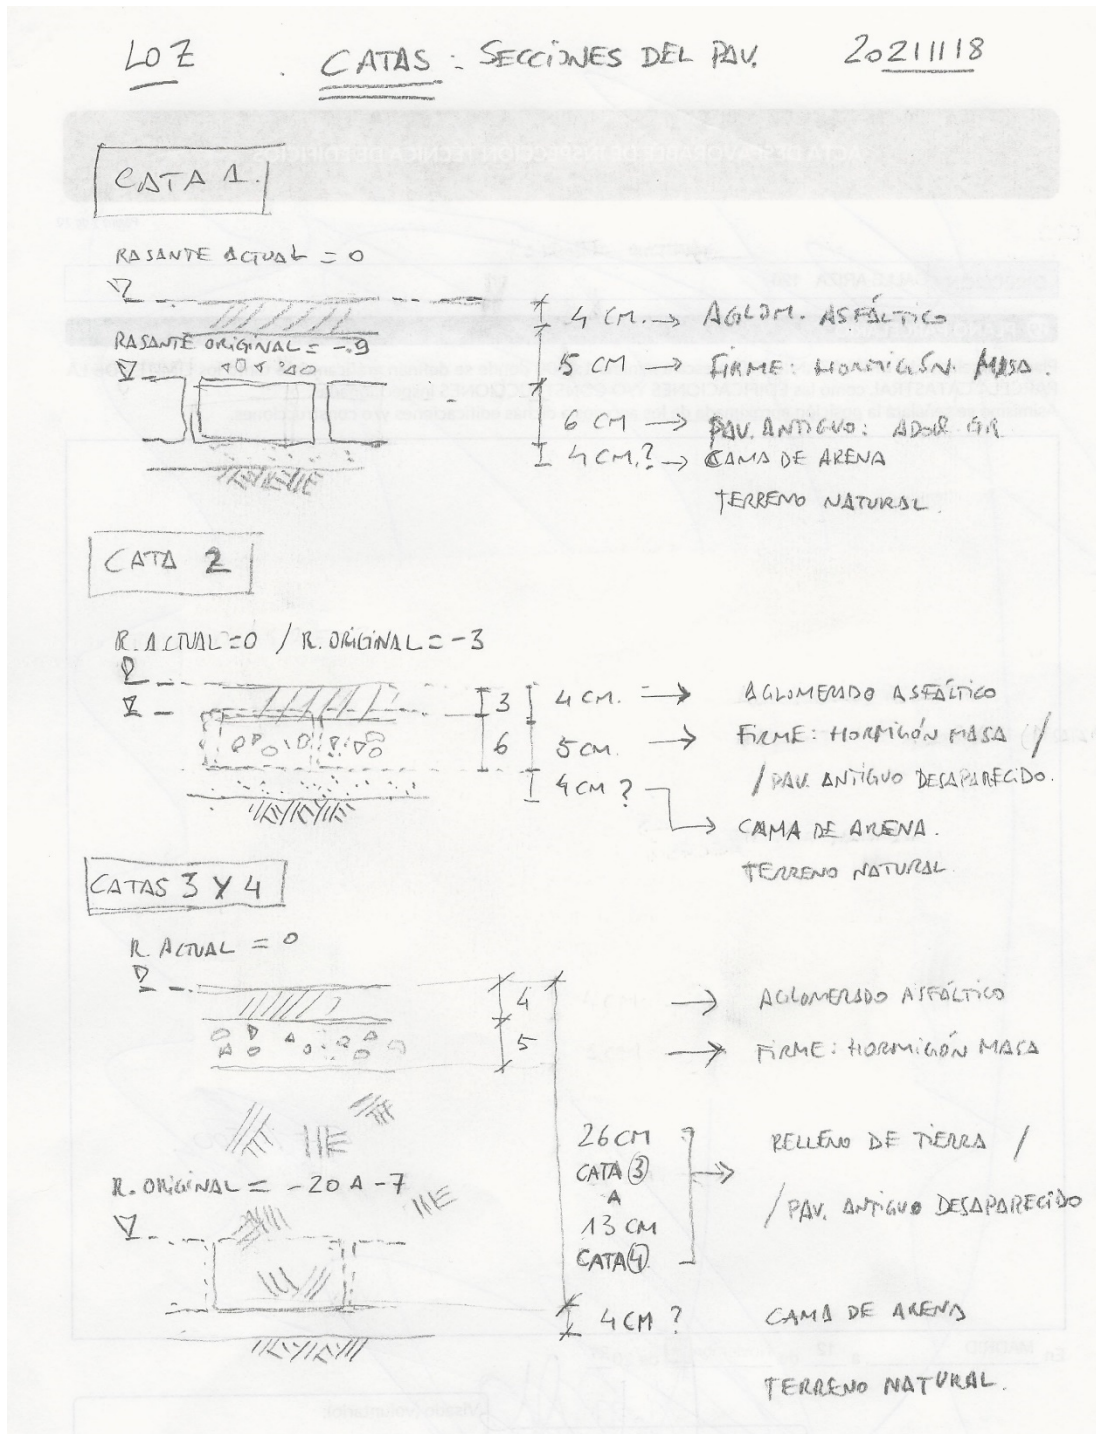 LOZ CATAS: SECCIONES DEL PAV. 20211118
CATA 1.
RASANTE ACTUAL = 0
4 CM. → AGLOM. ASFÁLTICO
RASANTE ORIGINAL = -9
5 CM → FIRME: HORMIGÓN MASA.
6 CM → PAV. ANTIGUO: ADOQ GR.
4 CM.? → CAMA DE ARENA
TERRENO NATURAL.
CATA 2
R. ACTUAL = 0 / R. ORIGINAL = -3
3 4 CM. → AGLOMERADO ASFÁLTICO
6 5 CM. → FIRME: HORMIGÓN MASA /
/ PAV. ANTIGUO DESAPARECIDO.
4 CM ?
→ CAMA DE ARENA.
TERRENO NATURAL
CATAS 3 Y 4
R. ACTUAL = 0
4 → AGLOMERADO ASFÁLTICO
5 → FIRME: HORMIGÓN MASA
26 CM → RELLENO DE TIERRA /
CATA 3
A
R. ORIGINAL = -20 A -7
/ PAV. ANTIGUO DESAPARECIDO
13 CM
CATA 4
4 CM ? CAMA DE ARENA
TERRENO NATURAL.